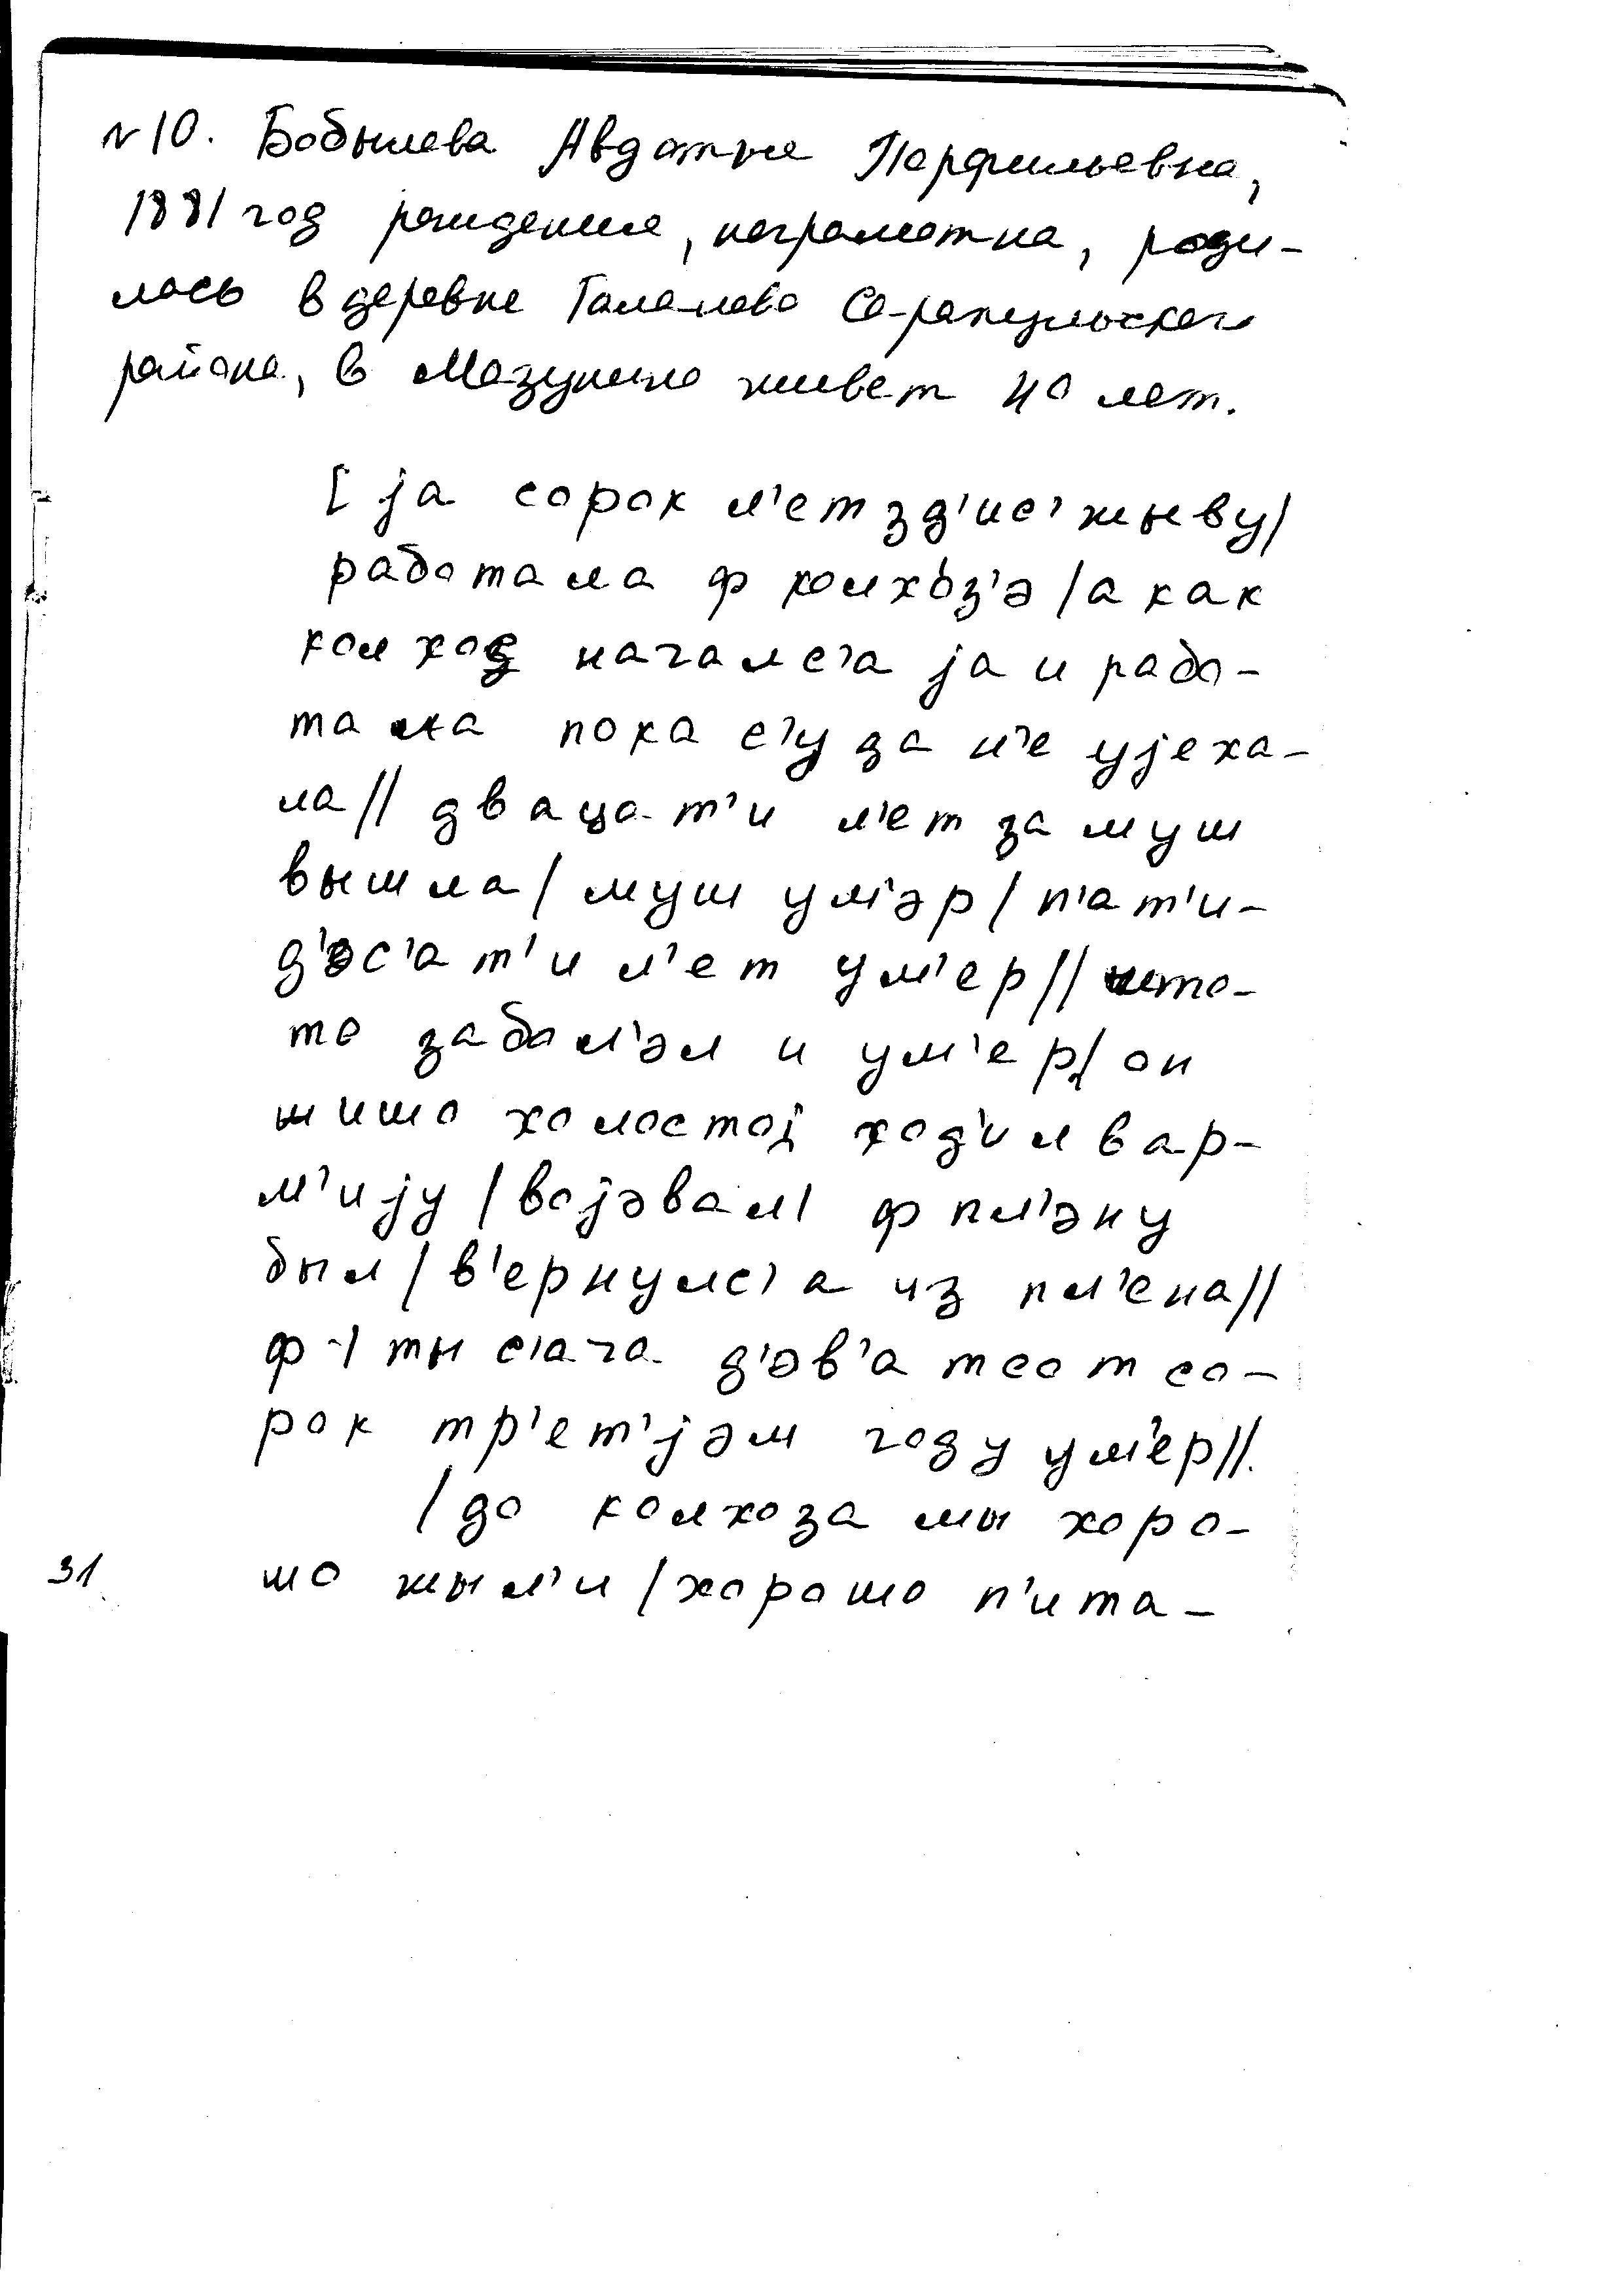 №10. Бобылева Авдотья Парфильевна,
1881 год рождения, неграмотна, роди-
лась в деревне Галаново Сарапульского
района, в Мазунино живет 40 лет.
[ jа сорок л'ет зд'ис' жыву/
работала ф колхо́з'э / а как
колхоз начался'а jа и рабо-
тала пока с'уда н'е уjеха-
ла// двацат'и л'ет замуш
вышла / муш ум'эр / п'ат'и-
д'эс'ат'и л'ет ум'ер// што-
то забол'эл и ум'ер/ он
шишо холостоj ход'ил в ар-
м'иjу / воjэвал/ ф пл'эну
был / в'ернулс'а из пл'ена//
ф ты с'ача д'эв'атсот со-
рок тр'ет'jэм году ум'ер//.
/ до колхоза мы хоро-
шо жыл'и / хорошо п'ита-
31